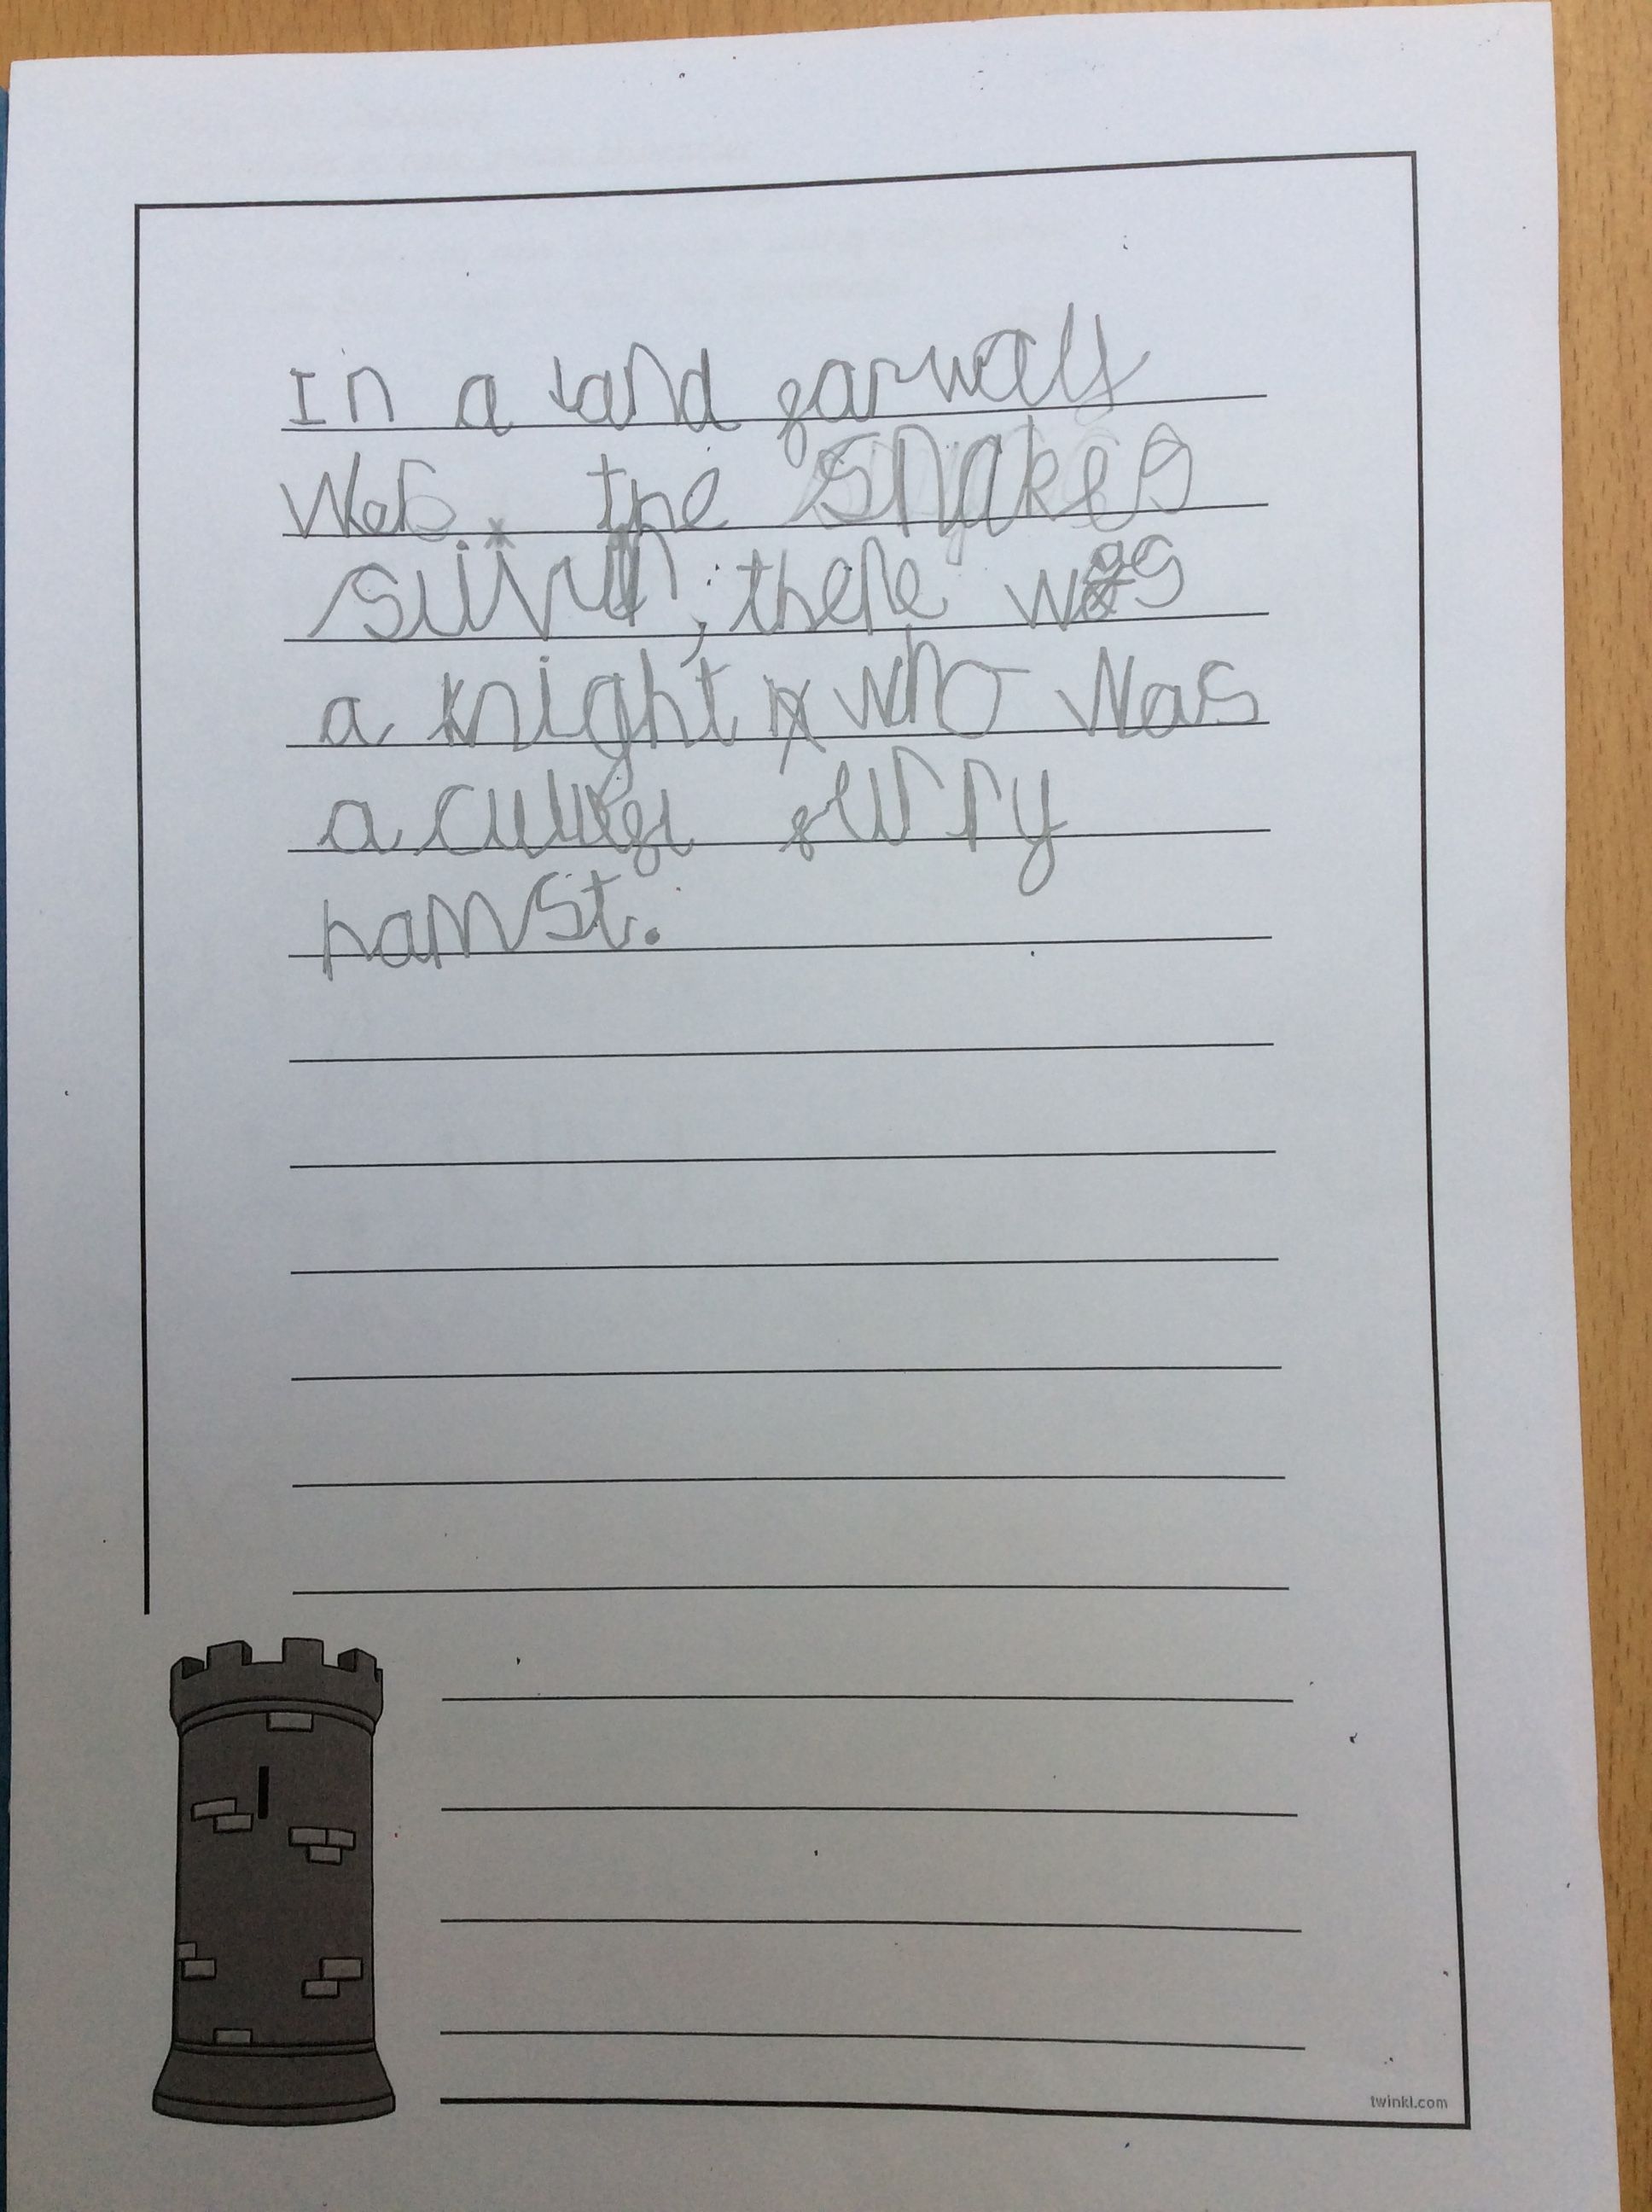 In a land far waly
Wer. the snakes
, there was
a knight who was
a furry
hamst.
twinkl.com